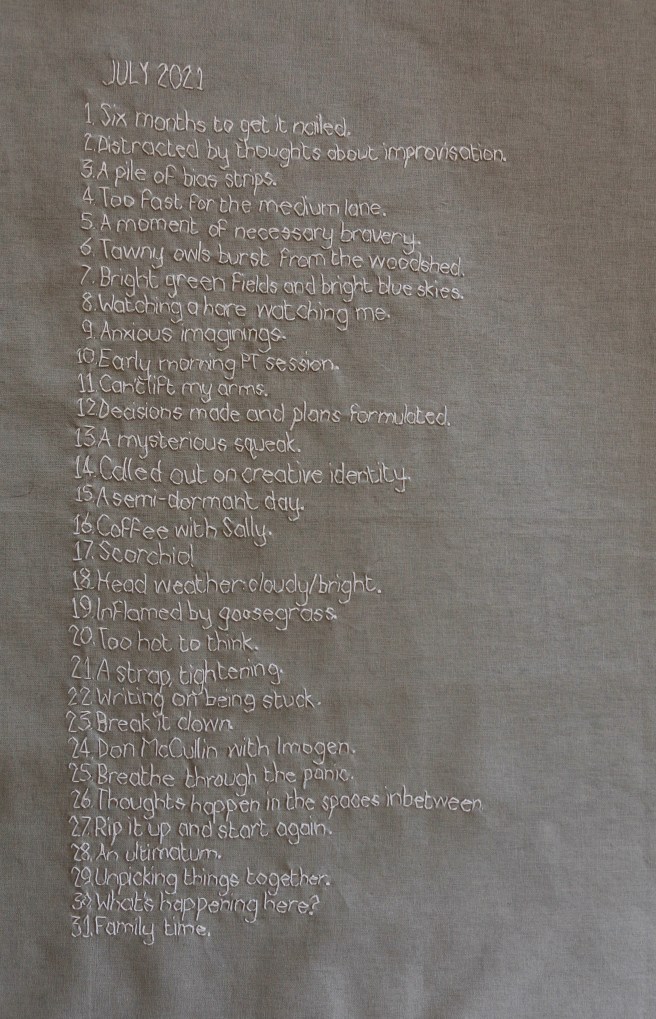 JULY 2021
1. Six months to get it nailed.
2. Distracted by thoughts about improvisation.
3. A pile of bias strips.
4. Too fast for the medium lane.
5. A moment of necessary bravery.
6. Tawny owls burst from the woodshed.
7. Bright green fields and bright blue skies.
8. Watching a hare watching me.
9. Anxious imaginings.
10. Early morning PT session.
11. Can't lift my arms.
12. Decisions made and plans formulated.
13. A mysterious squeak.
14. Called out on creative identity.
15. A semi-dormant day.
16. Coffee with Sally.
17. Scorchio!
18. Head weather: cloudy/bright.
19. Inflamed by goosegrass.
20. Too hot to think.
21. A strap, tightening.
22. Writing on being stuck.
23. Break it down.
24. Don McCullin with Imogen.
25. Breathe through the panic.
26. Thoughts happen in the spaces inbetween.
27. Rip it up and start again.
28. An ultimatum.
29. Unpicking things together.
30. What's happening here?
31. Family time.